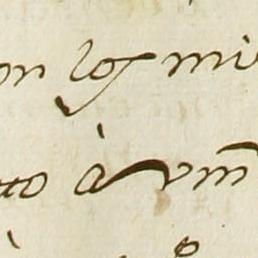 on los mi
tto à vm